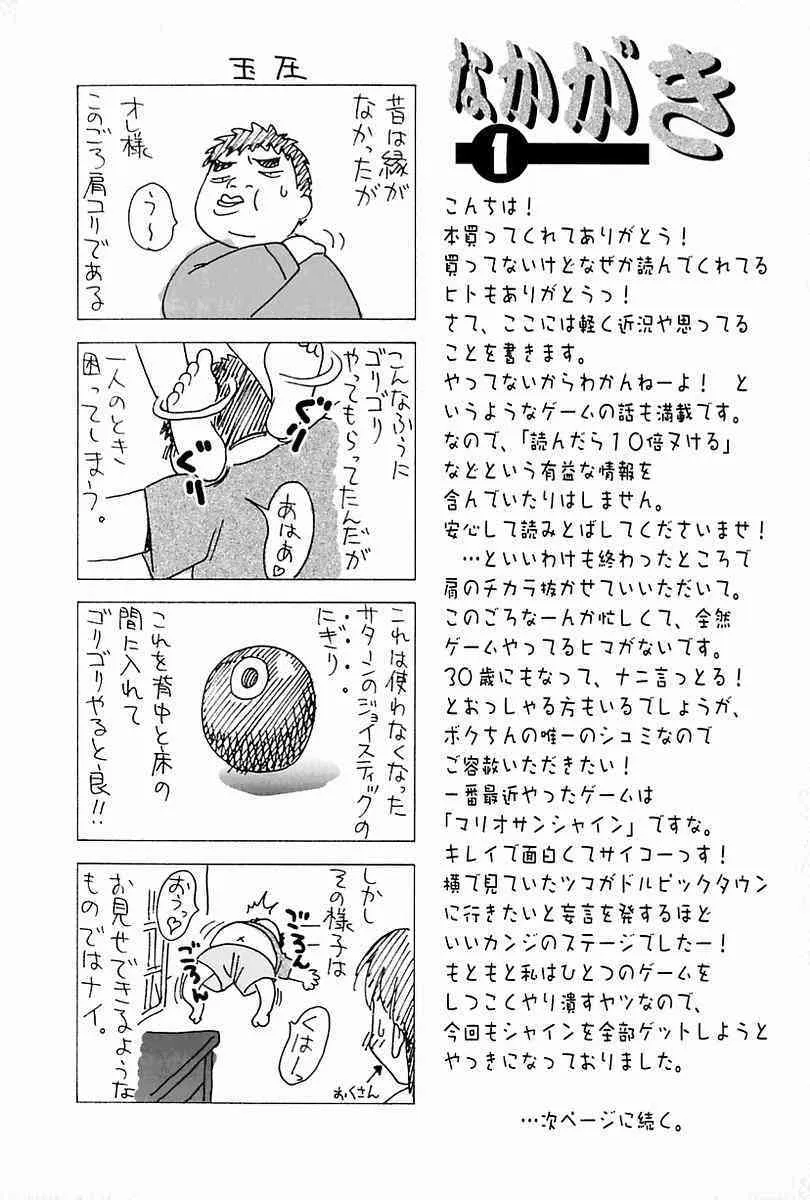 なかがき
1
こんちは!
本買ってくれてありがとう!
買ってないけどなぜか読んでくれてる
ヒトもありがとうっ!
さて、ここには軽く近況や思ってる
ことを書きます。
やってないからわかんねーよ! と
いうようなゲームの話も満載です。
なので、「読んだら10倍ヌける」
などという有益な情報を
含んでいたりはしません。
安心して読みとばしてくださいませ!
…といいわけも終わったところで
肩のチカラ抜かせていいただいて。
このごろなーんか忙しくて、全然
ゲームやってるヒマがないです。
30歳にもなって、ナニ言っとる!
とおっしゃる方もいるでしょうが、
ボクちんの唯一のシュミなので
ご容赦いただきたい!
一番最近やったゲームは
「マリオサンシャイン」ですな。
キレイで面白くてサイコーっす!
横で見ていたツマがドルピックタウン
に行きたいと妄言を発するほど
いいカンジのステージでしたー!
もともと私はひとつのゲームを
しつこくやり潰すヤツなので、
今回もシャインを全部ゲットしようと
やっきになっておりました。
…次ページに続く。
玉圧
昔は縁が
なかったが
オレ様
このごろ肩コリである
う〜
こんなふうに
ゴリゴリ
やってもらってたんだが
ぐっ
ぐっ
あはあ♡
一人のとき
困ってしまう。
これは使わなくなった
サターンのジョイスティックの
にぎり。
これを背中と床の
間に入れて
ゴリゴリやると良!!
しかし
その様子は
ごろん
ごろん
おうっ♡
くはーっ
おくさん
お見せできるような
ものではナイ。